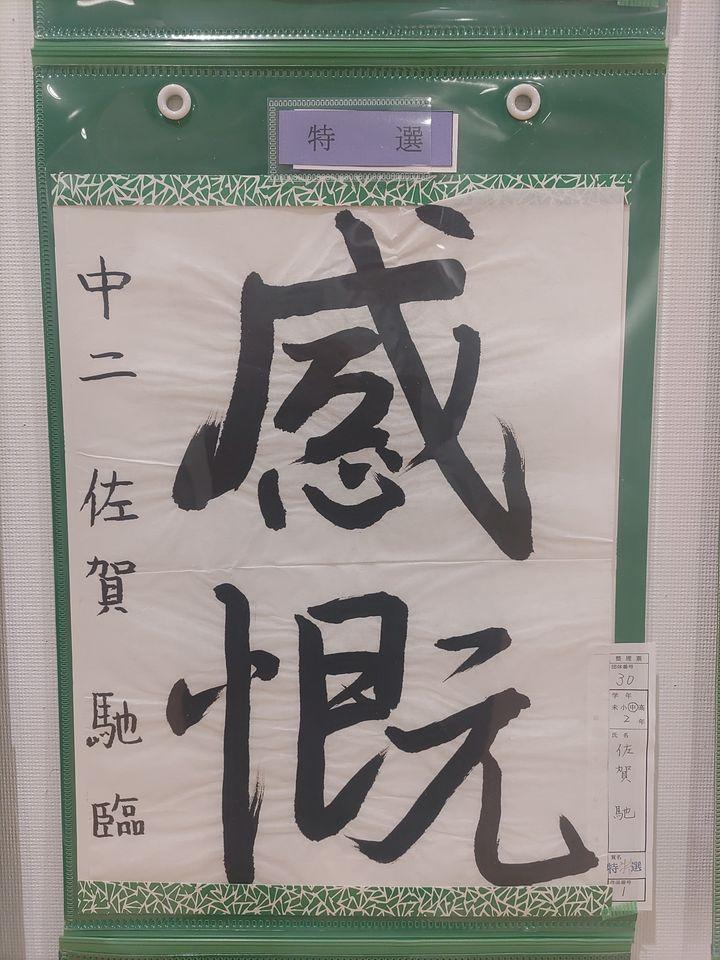 特選
感慨
中二 佐賀 馳 臨
整理票
団体番号
30
学年
未 小 中 高
2年
氏名
佐賀 馳
賞名
特選
作品番号
1